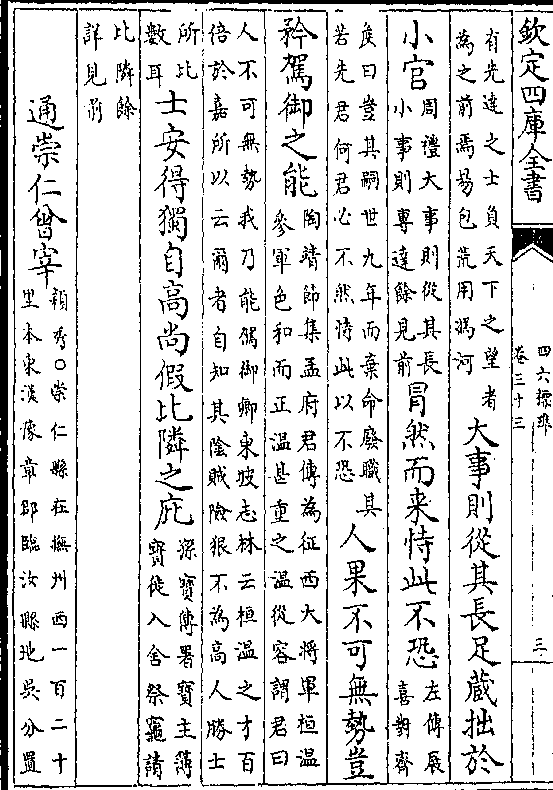 欽定四庫全書
四六標準
卷三十三
三
有光達之士負天下之望者
為之前焉易包荒用馮河
大事則從其長足蔵拙於
小官
周禮大事則從其長
小事則專達餘見前
冒然而来恃此不恐
左傳展
喜對齊
侯曰豈其嗣世九年而棄命廢職其
若先君何君必不然恃此以不恐
人果不可無勢豈
矜駕御之能
陶靖節集孟府君傳為征西大將軍桓溫
參軍色和而正溫甚重之溫從容謂君曰
人不可無勢我乃能駕御卿東坡志林云桓溫之才百
倍於嘉所以云爾者自知其陰賊險狠不為高人勝士
所比
數耳
士安得獨自高尚假比隣之庇
孫寶傳署寶主薄
寶徙入舍祭竈請
比隣餘
詳見前
通崇仁曾宰
頴秀○崇仁縣在撫州西一百二十
里本東漢豫章郡臨汝縣地吳分置